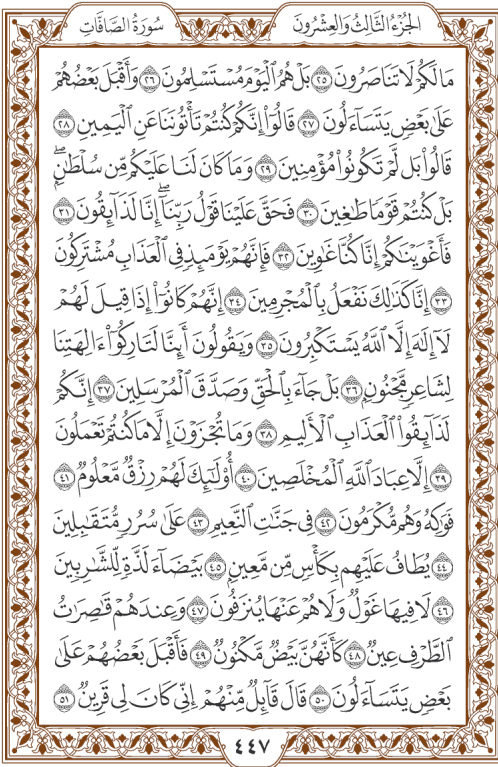 الجزء الثالث والعشرون
سورة الصافات
مَا لَكُمْ لَا تَنَاصَرُونَ ٢٥ بَلْ هُمُ ٱلْيَوْمَ مُسْتَسْلِمُونَ ٢٦ وَأَقْبَلَ بَعْضُهُمْ
عَلَىٰ بَعْضٍ يَتَسَآءَلُونَ ٢٧ قَالُوٓا۟ إِنَّكُمْ كُنتُمْ تَأْتُونَنَا عَنِ ٱلْيَمِينِ ٢٨
قَالُوا۟ بَل لَّمْ تَكُونُوا۟ مُؤْمِنِينَ ٢٩ وَمَا كَانَ لَنَا عَلَيْكُم مِّن سُلْطَـٰنٍۭ ۖ
بَلْ كُنتُمْ قَوْمًا طَـٰغِينَ ٣٠ فَحَقَّ عَلَيْنَا قَوْلُ رَبِّنَآ ۖ إِنَّا لَذَآئِقُونَ ٣١
فَأَغْوَيْنَـٰكُمْ إِنَّا كُنَّا غَـٰوِينَ ٣٢ فَإِنَّهُمْ يَوْمَئِذٍ فِى ٱلْعَذَابِ مُشْتَرِكُونَ
٣٣ إِنَّا كَذَٰلِكَ نَفْعَلُ بِٱلْمُجْرِمِينَ ٣٤ إِنَّهُمْ كَانُوٓا۟ إِذَا قِيلَ لَهُمْ
لَآ إِلَـٰهَ إِلَّا ٱللَّهُ يَسْتَكْبِرُونَ ٣٥ وَيَقُولُونَ أَئِنَّا لَتَارِكُوٓا۟ ءَالِهَتِنَا
لِشَاعِرٍ مَّجْنُونٍۭ ٣٦ بَلْ جَآءَ بِٱلْحَقِّ وَصَدَّقَ ٱلْمُرْسَلِينَ ٣٧ إِنَّكُمْ
لَذَآئِقُوا۟ ٱلْعَذَابِ ٱلْأَلِيمِ ٣٨ وَمَا تُجْزَوْنَ إِلَّا مَا كُنتُمْ تَعْمَلُونَ
٣٩ إِلَّا عِبَادَ ٱللَّهِ ٱلْمُخْلَصِينَ ٤٠ أُو۟لَـٰٓئِكَ لَهُمْ رِزْقٌ مَّعْلُومٌ ٤١
فَوَٰكِهُ وَهُم مُّكْرَمُونَ ٤٢ فِى جَنَّـٰتِ ٱلنَّعِيمِ ٤٣ عَلَىٰ سُرُرٍ مُّتَقَـٰبِلِينَ
٤٤ يُطَافُ عَلَيْهِم بِكَأْسٍ مِّن مَّعِينٍۭ ٤٥ بَيْضَآءَ لَذَّةٍ لِّلشَّـٰرِبِينَ
٤٦ لَا فِيهَا غَوْلٌ وَلَا هُمْ عَنْهَا يُنزَفُونَ ٤٧ وَعِندَهُمْ قَـٰصِرَٰتُ
ٱلطَّرْفِ عِينٌ ٤٨ كَأَنَّهُنَّ بَيْضٌ مَّكْنُونٌ ٤٩ فَأَقْبَلَ بَعْضُهُمْ عَلَىٰ
بَعْضٍ يَتَسَآءَلُونَ ٥٠ قَالَ قَآئِلٌ مِّنْهُمْ إِنِّى كَانَ لِى قَرِينٌ ٥١
٤٤٧